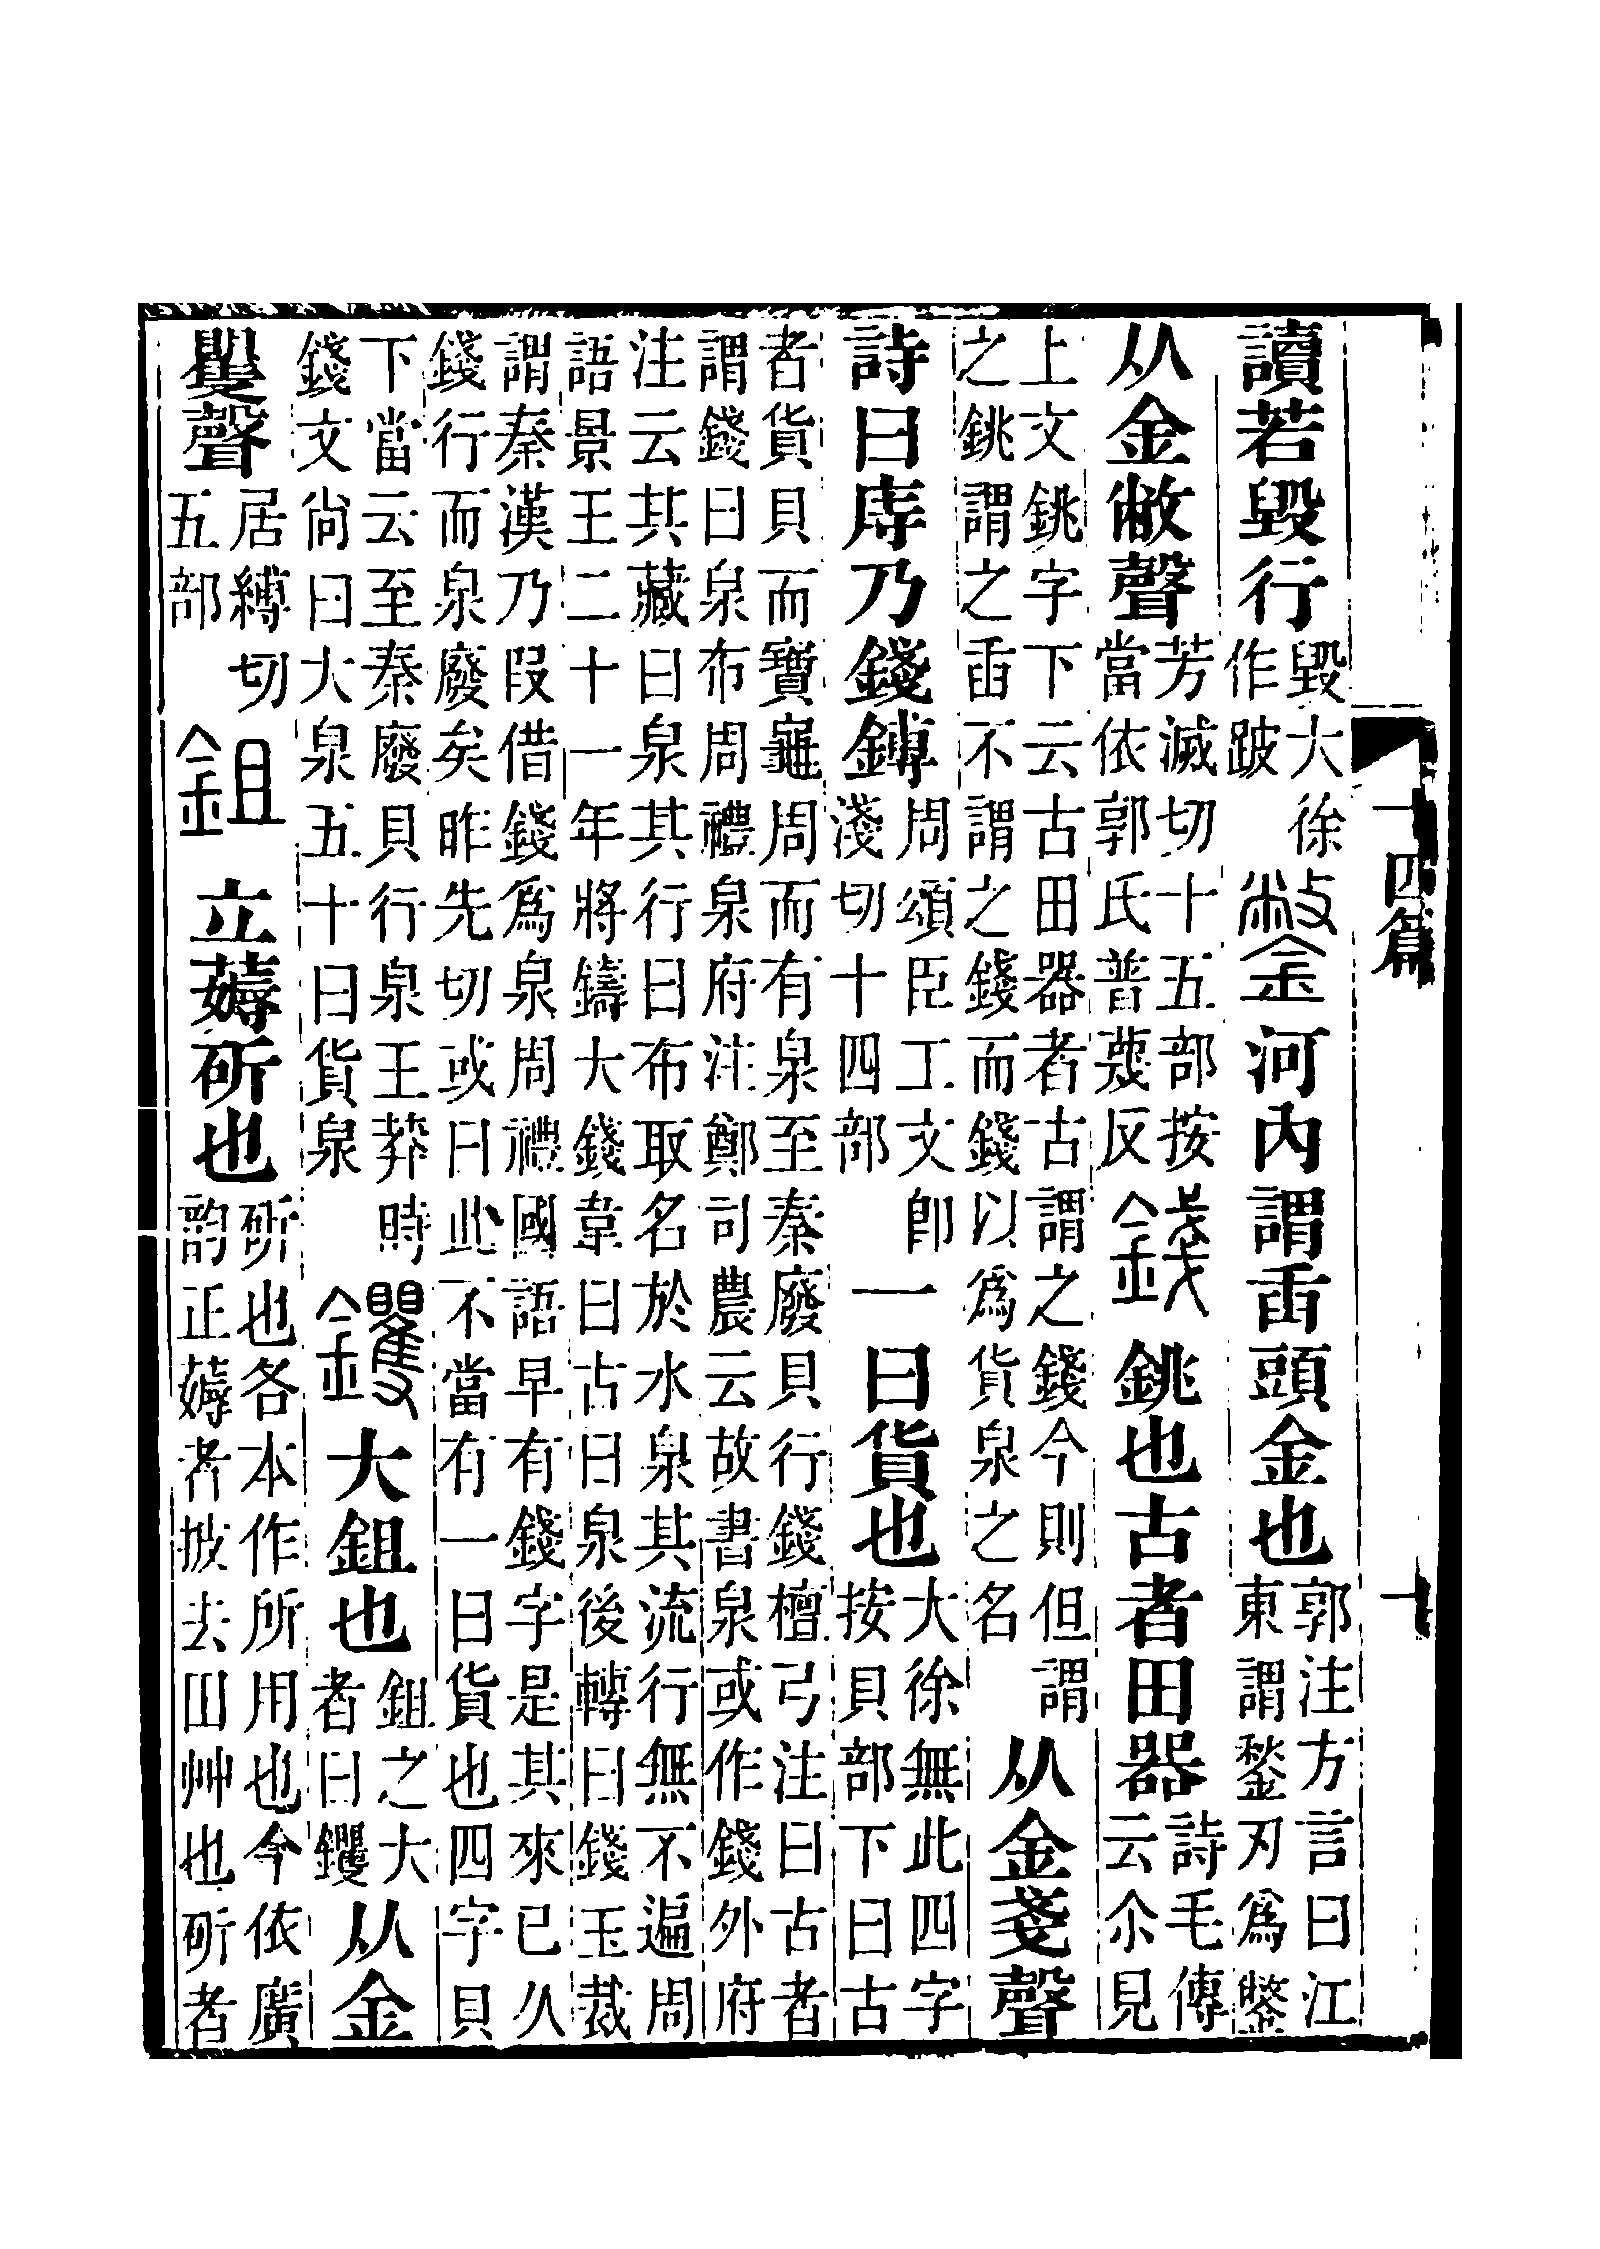 十四篇
十
讀若毀行
毀大徐
作跛
鐅
河內謂臿頭金也
郭注方言曰江
東謂鍫刃爲鐅
从金敝聲
芳滅切十五部按
當依郭氏普蔑反
錢
銚也古者田器
詩毛傳
云尒見
上文銚字下云古田器者古謂之錢今則但謂
之銚謂之臿不謂之錢而錢以爲貨泉之名
从金戔聲
詩曰庤乃錢鎛
周頌臣工文卽
淺切十四部
一曰貨也
大徐無此四字
按貝部下曰古
者貨貝而寶龜周而有泉至秦廢貝行錢檀弓注曰古者
謂錢曰泉布周禮泉府注鄭司農云故書泉或作錢外府
注云其藏曰泉其行曰布取名於水泉其流行無不遍周
語景王二十一年將鑄大錢韋曰古曰泉後轉曰錢玉裁
謂秦漢乃叚借錢爲泉周禮國語早有錢字是其來已久
錢行而泉廢矣昨先切或曰此不當有一曰貨也四字貝
下當云至秦廢貝行泉王莽時
錢文尙曰大泉五十曰貨泉
钁
大鉏也
鉏之大
者曰钁
从金
矍聲
居縛切
五部
鉏
立薅斫也
斫也各本作所用也今依廣
韵正薅者披去田艸也斫者